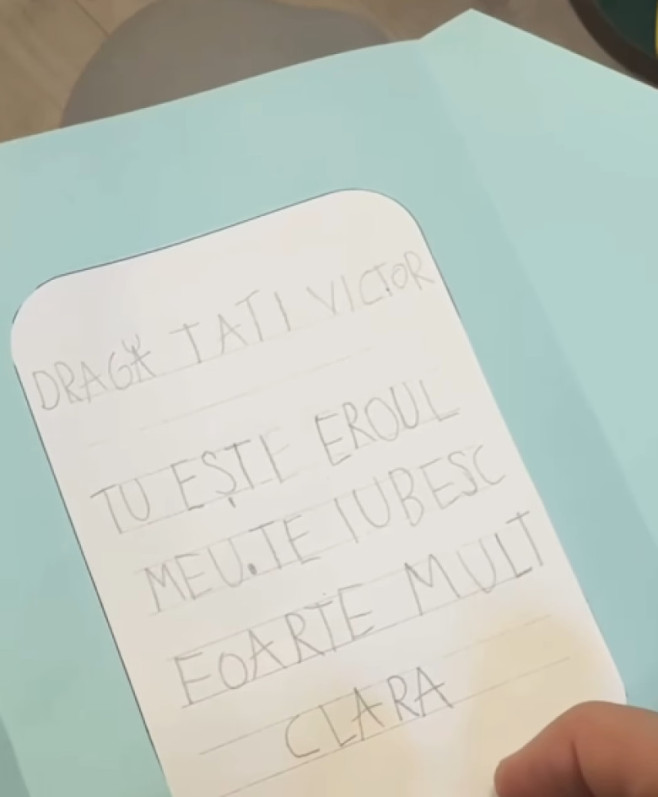 DRAGĂ TATI VICTOR
TU EȘTI EROUL
MEU.TE IUBESC
FOARTE MULT
CLARA